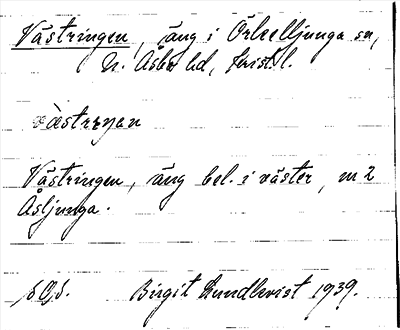 Västringen, äng i Örkelljunga sn,
N. Åsbo hd, Krist. l.
Västringen, äng bel. i väster, nr 2
Åsljunga.
Birgit Lundkvist 1939.